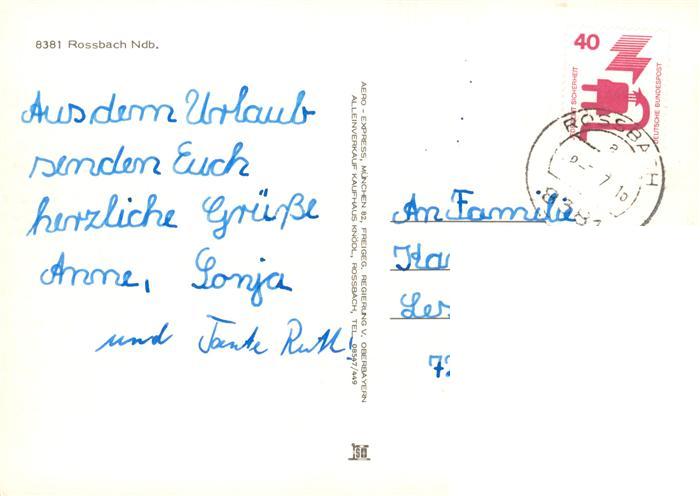 8381 Rossbach Ndb.
Aus dem Urlaub
senden Euch
herzliche Grüße
Anne, Sonja
und Tante Ruth!
AERO - EXPRESS, MÜNCHEN 82, FREIGEG. REGIERUNG V. OBERBAYERN
ALLEINVERKAUF KAUFHAUS KNÖDL, ROSSBACH, TEL. 08547/449
40
SICHERHEIT
DEUTSCHE BUNDESPOST
ROSSBACH
8381
An Familie